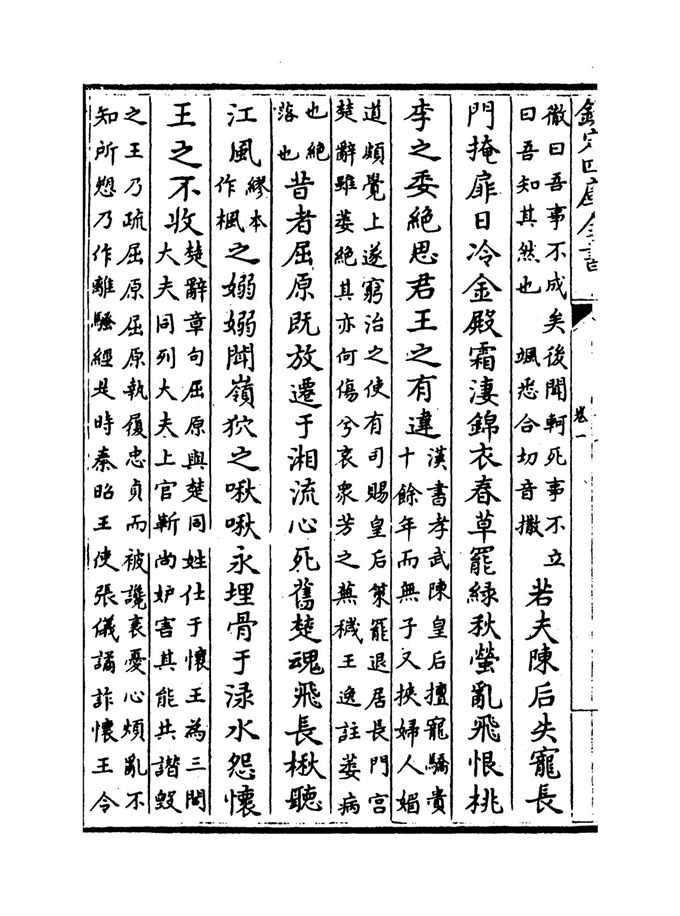 欽定四庫全書
卷一
徹曰吾事不成矣後聞軻死事不立
曰吾知其然也　颯悉合切音撒
若夫陳后失寵長
門掩扉日冷金殿霜淒錦衣春草罷緑秋螢亂飛恨桃
李之委絶思君王之有違
漢書孝武陳皇后擅寵驕貴
十餘年而無子又挾婦人媚
道頗覺上遂窮治之使有司賜皇后策罷退居長門宫
楚辭雖萎絶其亦何傷兮哀衆芳之蕪穢王逸註萎病
也絶
落也
昔者屈原既放遷于湘流心死舊楚魂飛長楸聽
江風
繆本
作楓
之嫋嫋聞嶺狖之啾啾永埋骨于渌水怨懷
王之不收
楚辭章句屈原與楚同姓仕于懷王為三閭
大夫同列大夫上官靳尚妒害其能共譖毀
之王乃疏屈原屈原執履忠貞而被讒衺憂心煩亂不
知所愬乃作離騷經是時秦昭王使張儀譎詐懷王令